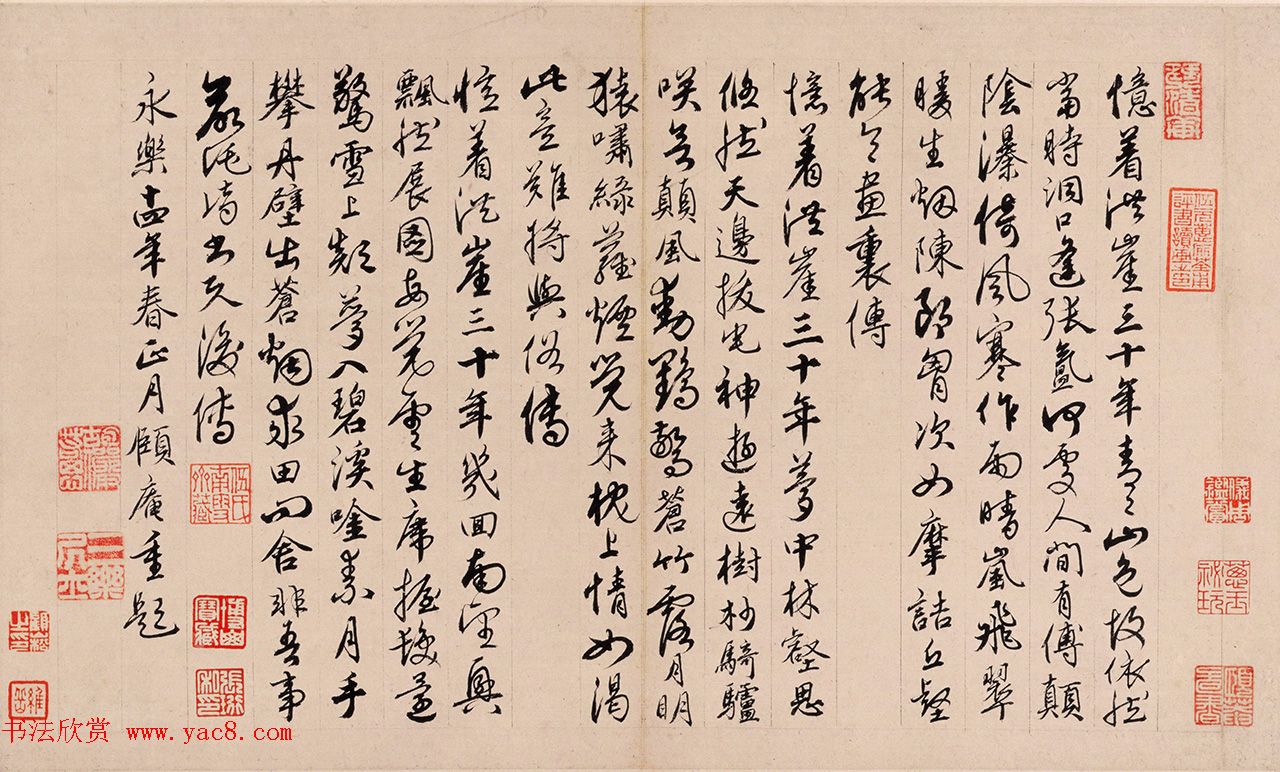 憶着洪崖三十年青〻山色故依然
當時洞口逢張氳何處人間有傅顛
陰瀑倚風寒作雨晴嵐飛翠
暖生烟陳郎胷次如摩詰丘壑
能令畫裏傳
憶着洪崖三十年夢中林壑思
翛然天邊拔宅神遊遠樹杪騎驢
咲欲顛風動鶴驚蒼竹露月明
猿嘯綠蘿煙覺來枕上情如渴
此意難將與俗傳
憶着洪崖三十年幾回南望興
飄然展圖每覺雲生席握髮還
驚雪上顛夢入碧溪唫素月手
攀丹壁出蒼烟求田問舍非吾事
書久後傳
永樂十四年春正月頤庵重題
书法欣赏 www.yac8.com